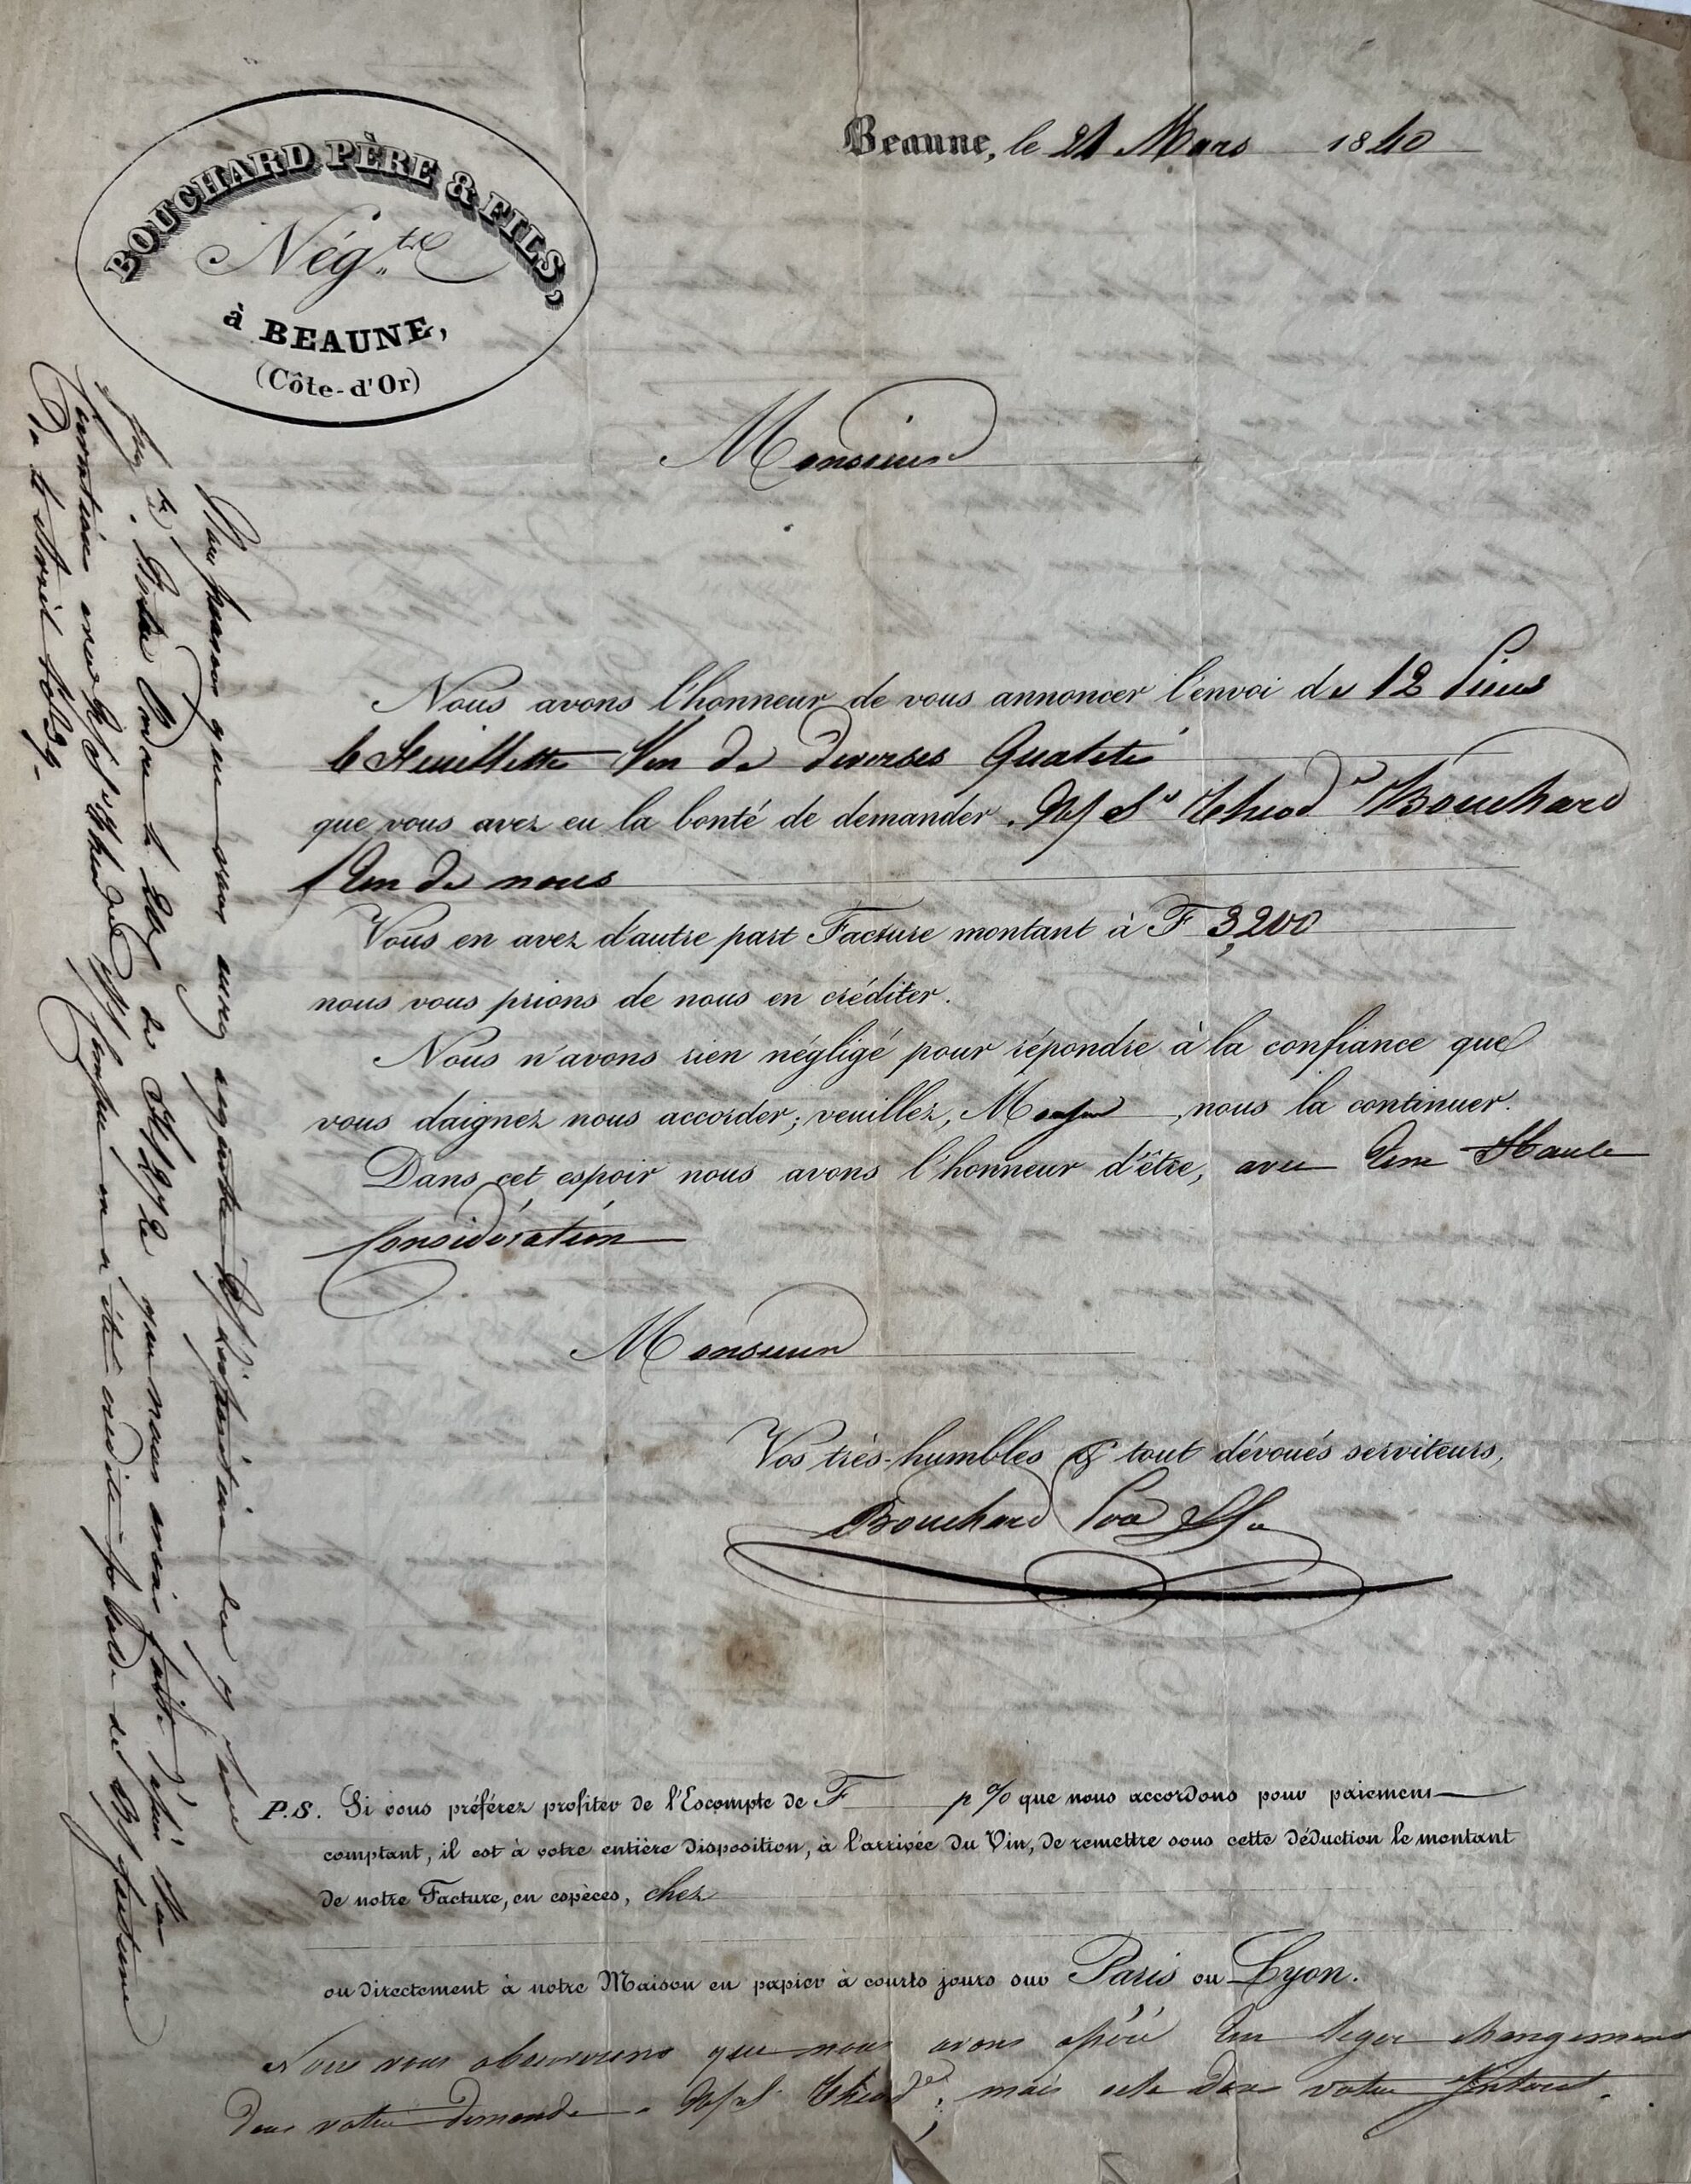 BOUCHARD PÈRE & FILS,
Nég.ts
à BEAUNE,
(Côte-d'Or)
Beaune, le 21 Mars 1840
Monsieur
Nous avons l'honneur de vous annoncer l'envoi de 12 Pieces
6 feuillettes Vin de diverses Qualités
que vous avez eu la bonté de demander. N/ Sr Théod Bouchard
l'un de nous
Vous en avez d'autre part Facture montant à F 3,200
nous vous prions de nous en créditer.
Nous n'avons rien négligé pour répondre à la confiance que
vous daignez nous accorder; veuillez, Monsieur, nous la continuer.
Dans cet espoir nous avons l'honneur d'être, avec une Haute
Considération
Monsieur
Vos très-humbles & tout dévoués serviteurs,
Bouchard
P.S. Si vous préférez profiter de l'Escompte de F p % que nous accordons pour paiement
comptant, il est à votre entière disposition, à l'arrivée du Vin, de remettre sous cette déduction le montant
de notre Facture, en espèces, chez
ou directement à notre Maison en papier à courts jours sur Paris ou Lyon.
Nous vous observerons que nous avons opéré un leger changement
Dans votre demande. N/ Sr Théod, mais cela dans votre Interet.
Nous pensons que vous aurez acquitté disposition du
que nous avions faite
a été credité p solde de facture